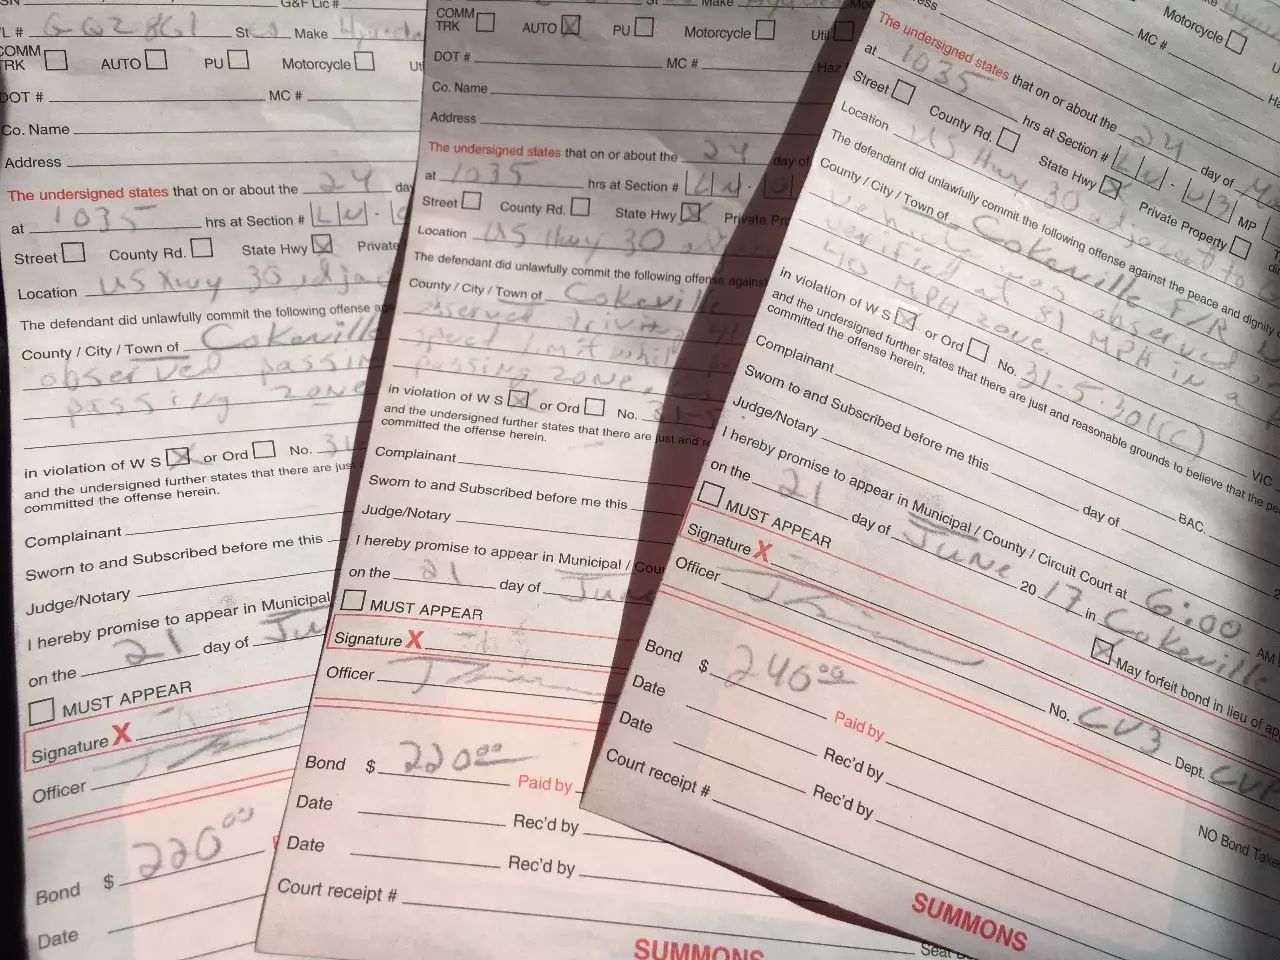 G&F Lic #
L # GQZ861 St Co Make Hyunda
COMM
TRK AUTO PU Motorcycle Uti
DOT # MC #
Co. Name
Address
The undersigned states that on or about the 24 da
at 1035 hrs at Section # L N - 0
Street County Rd. State Hwy Private
Location US Hwy 30 adjac
The defendant did unlawfully commit the following offense aga
County / City / Town of Cokeville
observed passin
passing zone
in violation of W S or Ord No. 31
and the undersigned further states that there are just
committed the offense herein.
Complainant
Sworn to and Subscribed before me this
Judge/Notary
I hereby promise to appear in Municipal
on the 21 day of Ju
MUST APPEAR
Signature X
Officer
Bond $ 220.00
Date
Make
COMM
TRK AUTO PU Motorcycle Util
DOT # MC # Haz
Co. Name
Address
The undersigned states that on or about the 24 day of
at 1035 hrs at Section # L N - 0
Street County Rd. State Hwy Private Pr
Location US Hwy 30
The defendant did unlawfully commit the following offense against
County / City / Town of Cokeville
observed driving
speed limit whil
passing zone.
in violation of W S or Ord No. 31-5
and the undersigned further states that there are just and re
committed the offense herein.
Complainant
Sworn to and Subscribed before me this
Judge/Notary
I hereby promise to appear in Municipal / Cou
on the 21 day of June
MUST APPEAR
Signature X
Officer
Bond $ 220.00
Paid by
Date Rec'd by
Date Rec'd by
Court receipt #
SUMMONS
Motorcycle
MC #
The undersigned states that on or about the 24 day of M
at 1035 hrs at Section # L N - 03 MP
Street County Rd. State Hwy Private Property
Location US Hwy 30 adjacent to
The defendant did unlawfully commit the following offense against the peace and dignity
County / City / Town of Cokeville
vehicle was observed
verified at 91 MPH in a
MPH zone.
in violation of W S or Ord No. 31-5-301(c)
and the undersigned further states that there are just and reasonable grounds to believe that the pe
committed the offense herein.
Complainant VIC
Sworn to and Subscribed before me this day of BAC.
Judge/Notary
I hereby promise to appear in Municipal / County / Circuit Court at 6:00 AM
on the 21 day of June 20 17 in Cokeville
MUST APPEAR May forfeit bond in lieu of ap
Signature X
Officer No. CV3 Dept. CVP
Bond $ 240.00
Paid by NO Bond Take
Date Rec'd by
Date Rec'd by
Court receipt #
SUMMONS
Seat